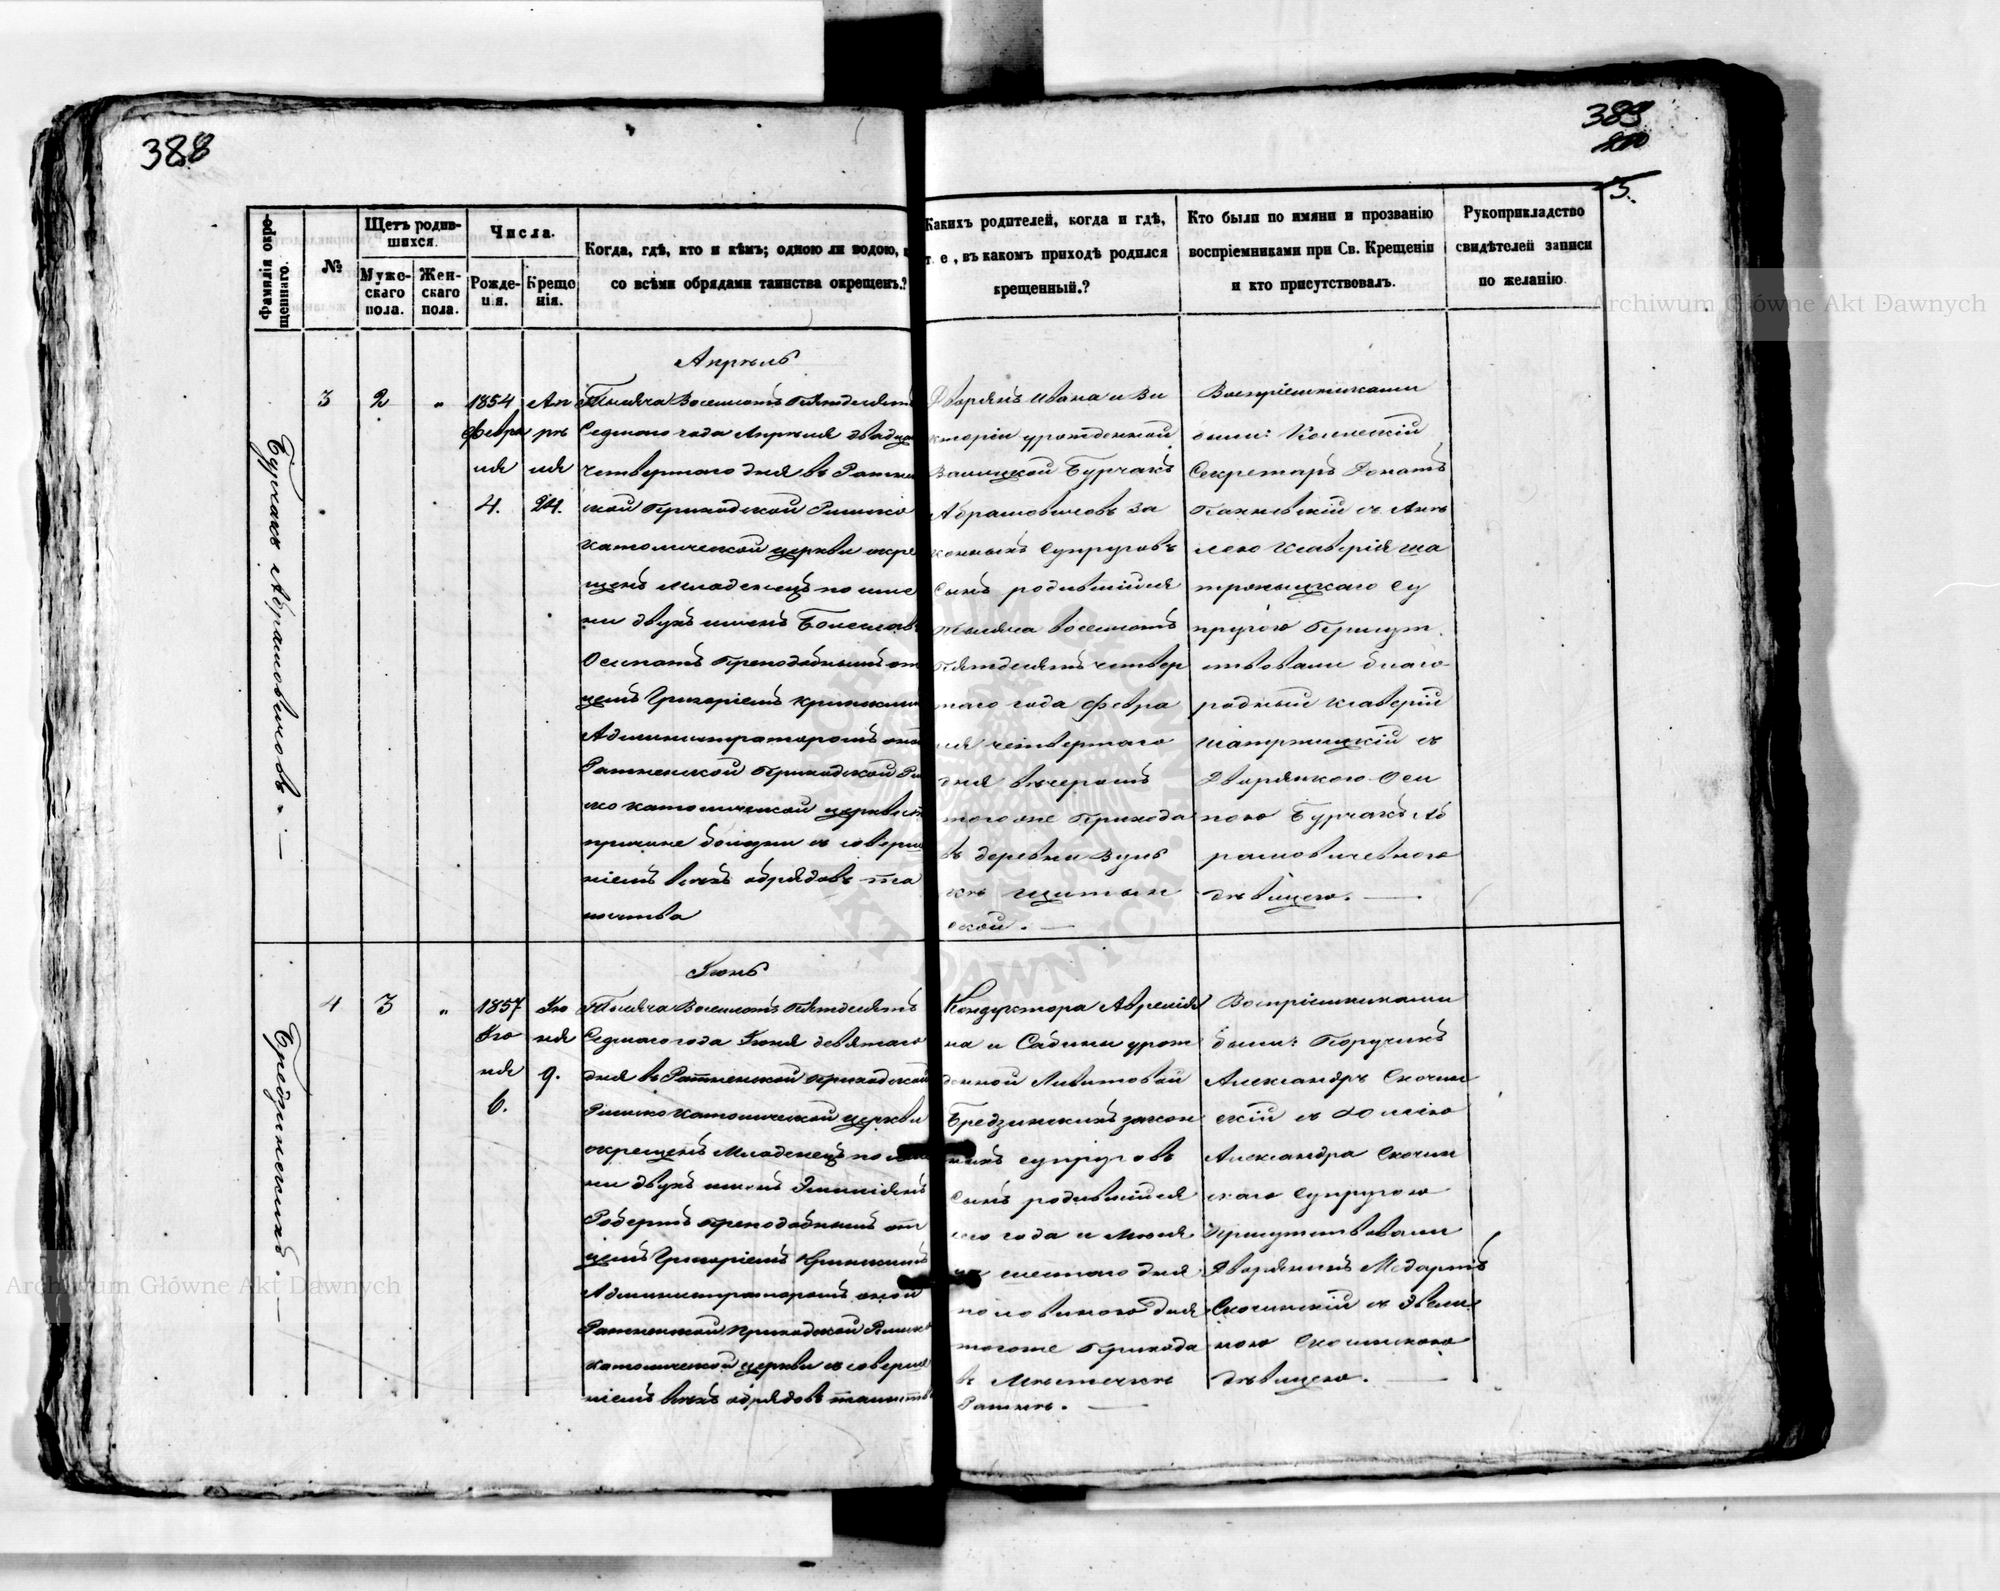 388
389
3.
Фамилія окрещеннаго.
№
Щетъ родившихся.
Мужескаго пола.
Женскаго пола.
Числа.
Рожденія.
Крещенія.
Когда, гдѣ, кто и кѣмъ; одною ли водою, и
со всѣми обрядами таинства окрещенъ.?
Каихъ родителей, когда и гдѣ,
т. е, въ какомъ приходѣ родился
крещенный.?
Кто были по имяни и прозванію
воспріемниками при Св. Крещеніи
и кто присутствовалъ.
Рукоприкладство
свидѣтелей записи
по желанію.
Бурчакъ Абрамовичовъ. —
3
2
"
1854
Февра
ля
4.
Ап
рѣ
ля
24.
Апрѣль
Тысяча Восемсотъ Пятдесятъ
Седмаго года Апрѣля двадца
четвертаго дня въ Ратнен
ской Приходской Римско
католической церкви окре
щенъ Младенецъ по име
ни двухъ именъ Болеславъ
Осипатъ Преподобнымъ от
цемъ Григоріемъ
Администраторомъ оной
Ратненской Приходской Ри
ско католической церкви по
причине болезни съ соверше
ніемъ всехъ обрядовъ та
инства
Дворянъ Ивана и Ви
кторіи урожденной
Бурчакъ
Абрамовичовъ за
конныхъ Супруговъ
Сынъ родившійся
тысяча восемсотъ
Пятдесятъ четвер
таго года Февра
ля четвертаго
дня вечеромъ
тогоже Прихода
въ деревни Вуль
кѣ Щитын
ской. —
Воспріемниками
были: Колежскій
Секретарь Донатъ
съ Анѣ
лею Ксаверія
Су
пругою Присут
ствовали благо
родный Ксаверій
съ
Дворянкою Оси
пою Бурчакъ Аб
рамовичевною
дѣвицею. —
Бредзинскихъ. —
4
3
"
1857
Ію
ня
6.
Ію
ня
9.
Іюнь
Тысяча Восемсотъ Пятдесятъ
Седмаго года Іюня девятаго
дня въ Ратненской Приходской
Римско Католической церкви
окрещенъ Младенецъ по име
ни двухъ именъ Эмиліянъ
Робертъ Преподобнымъ от
цемъ Григоріемъ
Администраторомъ оной
Ратненской Приходской Римско
католической церкви съ соверше
ніемъ всехъ обрядовъ таинства
Кондуктора Авреліа
на и Сабины урож
денной
Бредзинскихъ закон
ныхъ супруговъ
Сынъ родившійся
сего года и Июня
шестаго дня
половиною дня
тогоже Прихода
въ Мѣстечкѣ
Ратнѣ. —
Воспріемниками
были: Поручикъ
Александръ Скочин
скій съ
Александра Скочин
скаго Супругою
Присутствовали
Дворянинъ Медартъ
Скочинскій съ Эвели
ною Скочинскою
дѣвицею. —
Archiwum Główne Akt Dawnych
Archiwum Główne Akt Dawnych